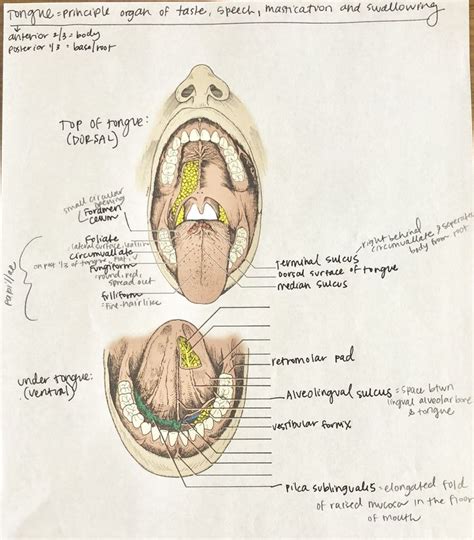 Tongue = principle organ of taste, speech, mastication and swallowing
anterior 2/3 = body
posterior 1/3 = base/root
Top of tongue:
(DORSAL)
small circular
opening
Foramen
cecum
Foliate
lateral surface,
circumvallate
on post 1/3 of tongue,
Fungiform
round, red,
spread out
filiform
= fine-hairlike
Papillae
right behind
circumvallate & seperates
body from root
Terminal sulcus
Dorsal surface of tongue
median sulcus
under tongue:
(ventral)
retromolar pad
Alveolingual sulcus = space btwn
lingual alveolar bone
& tongue
vestibular fornix
Plica sublingualis = elongated fold
of raised mucosa in the floor
of mouth